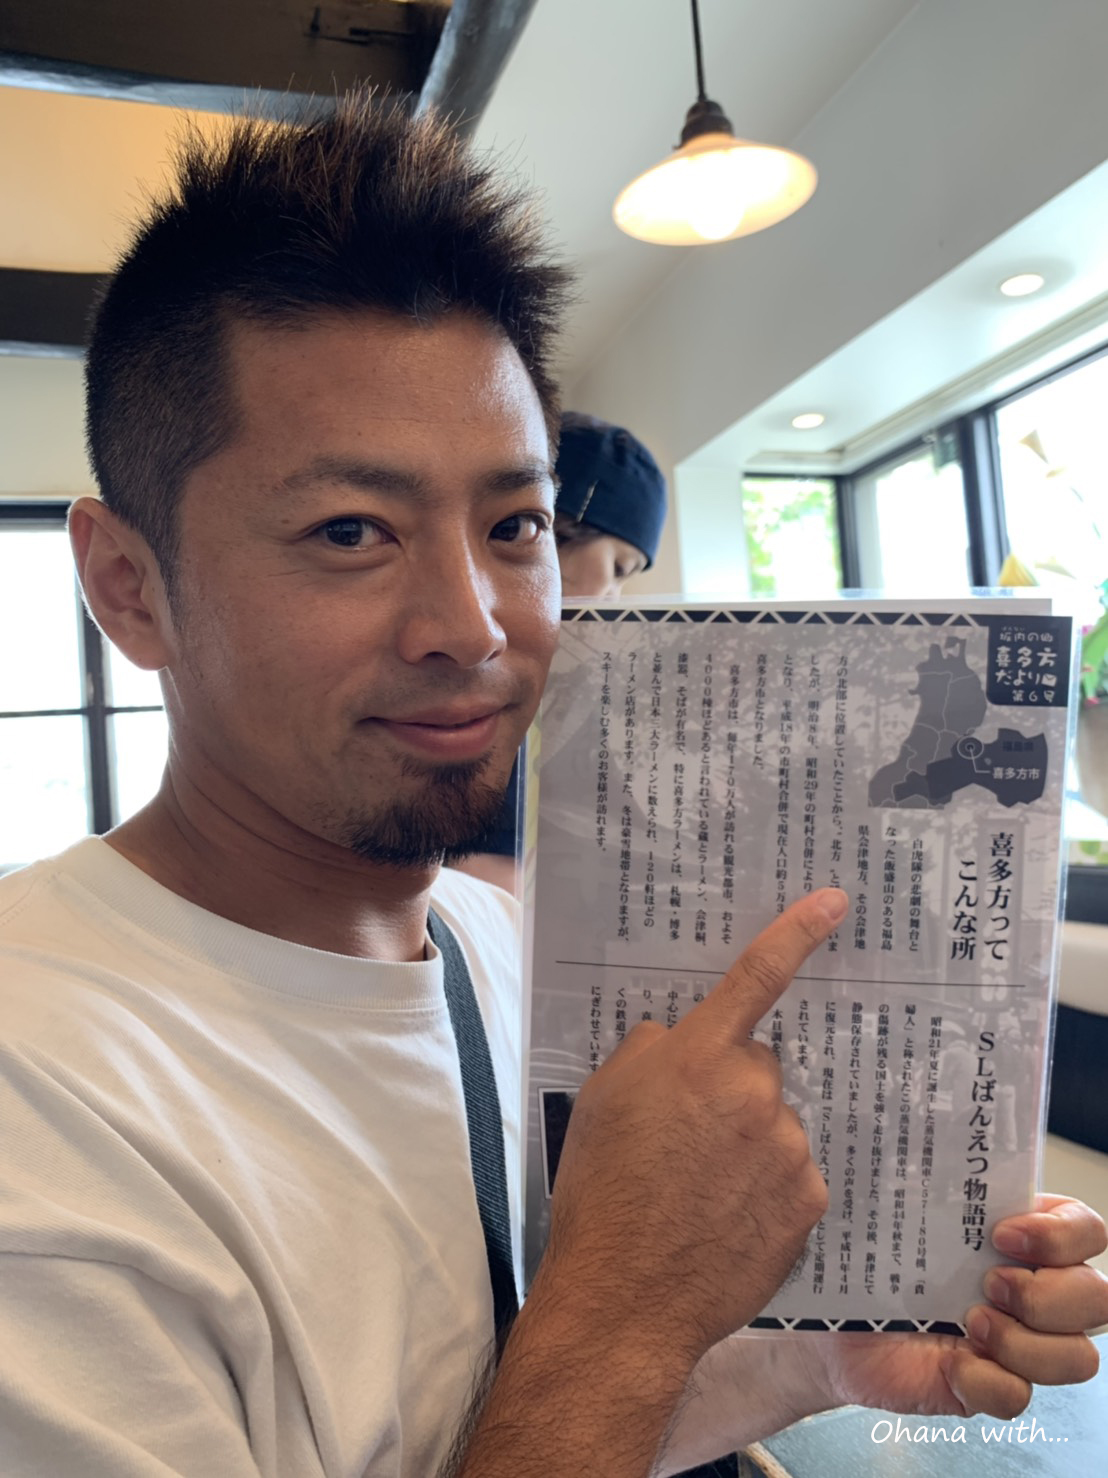 坂内の郷
喜多方
だより
第6号
福島県
喜多方市
喜多方って
こんな所
白虎隊の悲劇の舞台と
なった飯盛山のある福島
県会津地方。その会津地
方の北部に位置していたことから、"北方"と
いま
したが、明治8年、昭和29年の町村合併により
となり、平成18年の市町村合併で現在人口約5万3
喜多方市となりました。
喜多方市は、毎年170万人が訪れる観光都市。およそ
4000棟ほどあると言われている蔵とラーメン、会津桐、
漆器、そばが有名で、特に喜多方ラーメンは、札幌・博多
と並んで日本三大ラーメンに数えられ、120軒ほどの
ラーメン店があります。また、冬は豪雪地帯となりますが、
スキーを楽しむ多くのお客様が訪れます。
SLばんえつ物語号
昭和21年夏に誕生した蒸気機関車C57-180号機。「貴
婦人」と称されたこの蒸気機関車は、昭和44年秋まで、戦争
の傷跡が残る国土を強く走り抜けました。その後、新津にて
静態保存されていましたが、多くの声を受け、平成11年4月
に復元され、現在は『SLばんえつ物
として定期運行
されています。
木目調を
の
中心に
り、喜
くの鉄道フ
にぎわせています
Ohana with...